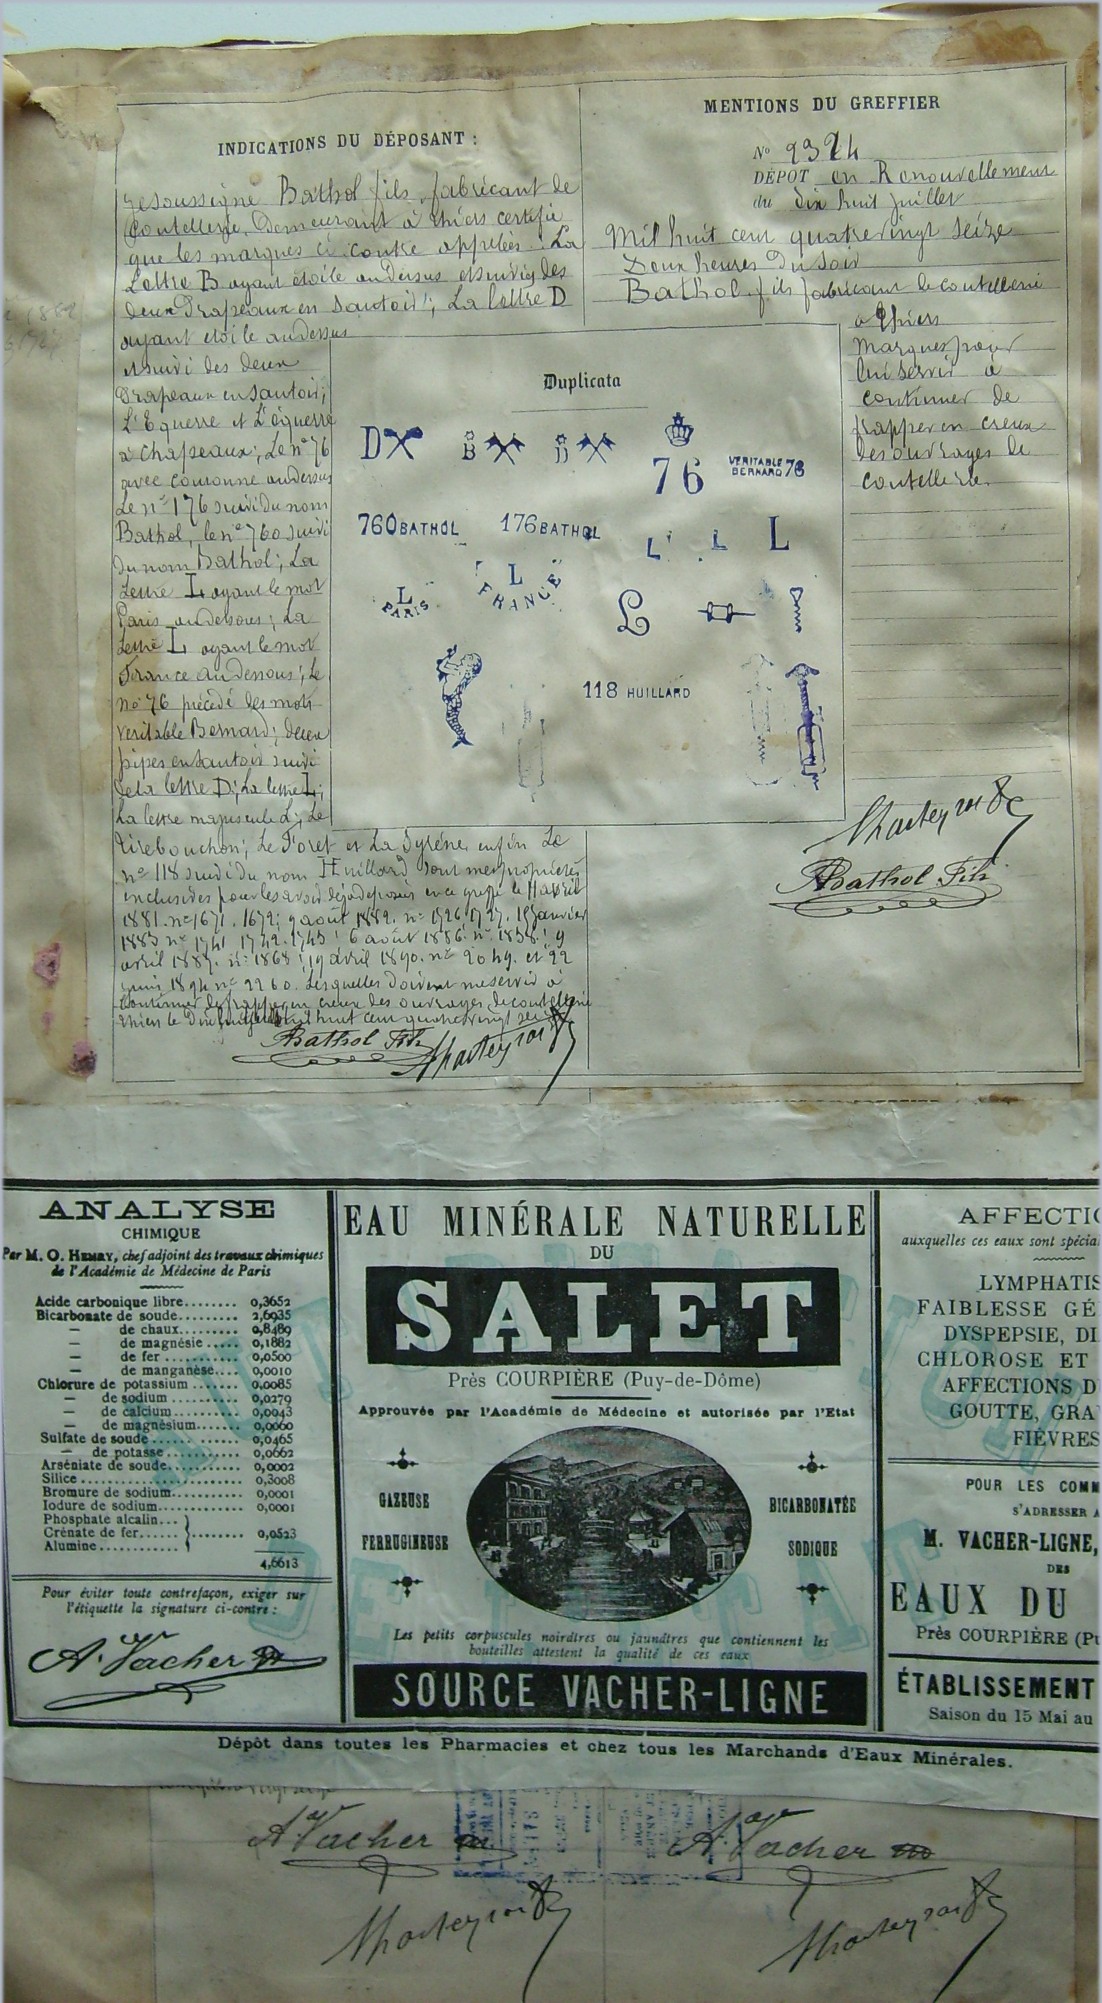 INDICATIONS DU DÉPOSANT :
Jesoussigné Bathol fils, fabricant de
Coutellerie, Demeurant à thiers certifie
que les marques ci contre appelées : La
Lettre B ayant étoile audessus etsuivie des
deux Drapeaux en Sautoir; La lettre D
ayant étoile audessus
etsuivi des deux
Drapeaux en Sautoir;
L'Equerre et L'équerre
à Chapeaux; Le n° 76
avec couronne audessus
Le n° 176 suivi du nom
Bathol, le n° 760 suivi
du nom Bathol; La
Lettre L ayant le mot
Paris audessous; La
Lettre L ayant le mot
France audessous; Le
n° 76 précédé des mots
veritable Bernard; deux
pipes en sautoir suivi
de la lettre D; La lettre L;
La lettre majuscule L; Le
Tirebouchon; Le Foret et La Syrène enfin Le
n° 118 suivi du nom Huillard sont mes propriétés
exclusives pour les avoir déjà déposées en ce greffe le 11 avril
1881. n° 1671. 1672; 9 août 1882. n° 1726. 1727. 19 Janvier
1883 n° 1741 1742. 1743; 6 août 1886. n° 1838; 9
avril 1887. n° 1868; 19 avril 1890. n° 2049. et 22
juin 1894 n° 2260. Lesquelles doivent me servir à
Continuer de frapper en creux des ouvrages de coutellerie
Thiers le Dix huit juillet mil huit cent quatre vingt seize
Bathol Fils
MENTIONS DU GREFFIER
N° 2324
DÉPÔT en Renouvellement
du dix huit juillet
Mil huit cent quatre vingt seize
Deux heures du soir
Bathol fils fabricant de coutellerie
à Thiers
Marques pour
lui servir à
continuer de
frapper en creux
des ouvrages de
coutellerie.
Duplicata
D B D 76 VERITABLE BERNARD 76
760 BATHOL 176 BATHOL L L L
L PARIS L FRANCE L
118 HUILLARD
Bathol Fils
ANALYSE
CHIMIQUE
Par M. O. HENRY, chef adjoint des travaux chimiques
de l'Académie de Médecine de Paris
Acide carbonique libre........ 0,3652
Bicarbonate de soude......... 2,6935
— de chaux......... 0,8489
— de magnésie ..... 0,1882
— de fer ........... 0,0500
— de manganèse.... 0,0010
Chlorure de potassium ....... 0,0085
— de sodium .......... 0,0279
— de calcium......... 0,0043
— de magnésium....... 0,0060
Sulfate de soude.............. 0,0465
— de potasse........... 0,0662
Arséniate de soude........... 0,0002
Silice ........................ 0,3008
Bromure de sodium........... 0,0001
Iodure de sodium............. 0,0001
Phosphate alcalin...
Crénate de fer...... } ........ 0,0523
Alumine............
4,6613
Pour éviter toute contrefaçon, exiger sur
l'étiquette la signature ci-contre :
A. Vacher
EAU MINÉRALE NATURELLE
DU
SALET
Près COURPIÈRE (Puy-de-Dôme)
Approuvée par l'Académie de Médecine et autorisée par l'Etat
GAZEUSE
FERRUGINEUSE
BICARBONATÉE
SODIQUE
Les petits corpuscules noirâtres ou jaunâtres que contiennent les
bouteilles attestent la qualité de ces eaux
SOURCE VACHER-LIGNE
AFFECTIO
auxquelles ces eaux sont spécia
LYMPHATIS
FAIBLESSE GÉ
DYSPEPSIE, DI
CHLOROSE ET
AFFECTIONS D
GOUTTE, GRA
FIÈVRES
POUR LES COMM
S'ADRESSER A
M. VACHER-LIGNE,
DES
EAUX DU
Près COURPIÈRE (Pu
ÉTABLISSEMENT
Saison du 15 Mai au
Dépôt dans toutes les Pharmacies et chez tous les Marchands d'Eaux Minérales.
A Vacher A. Vacher